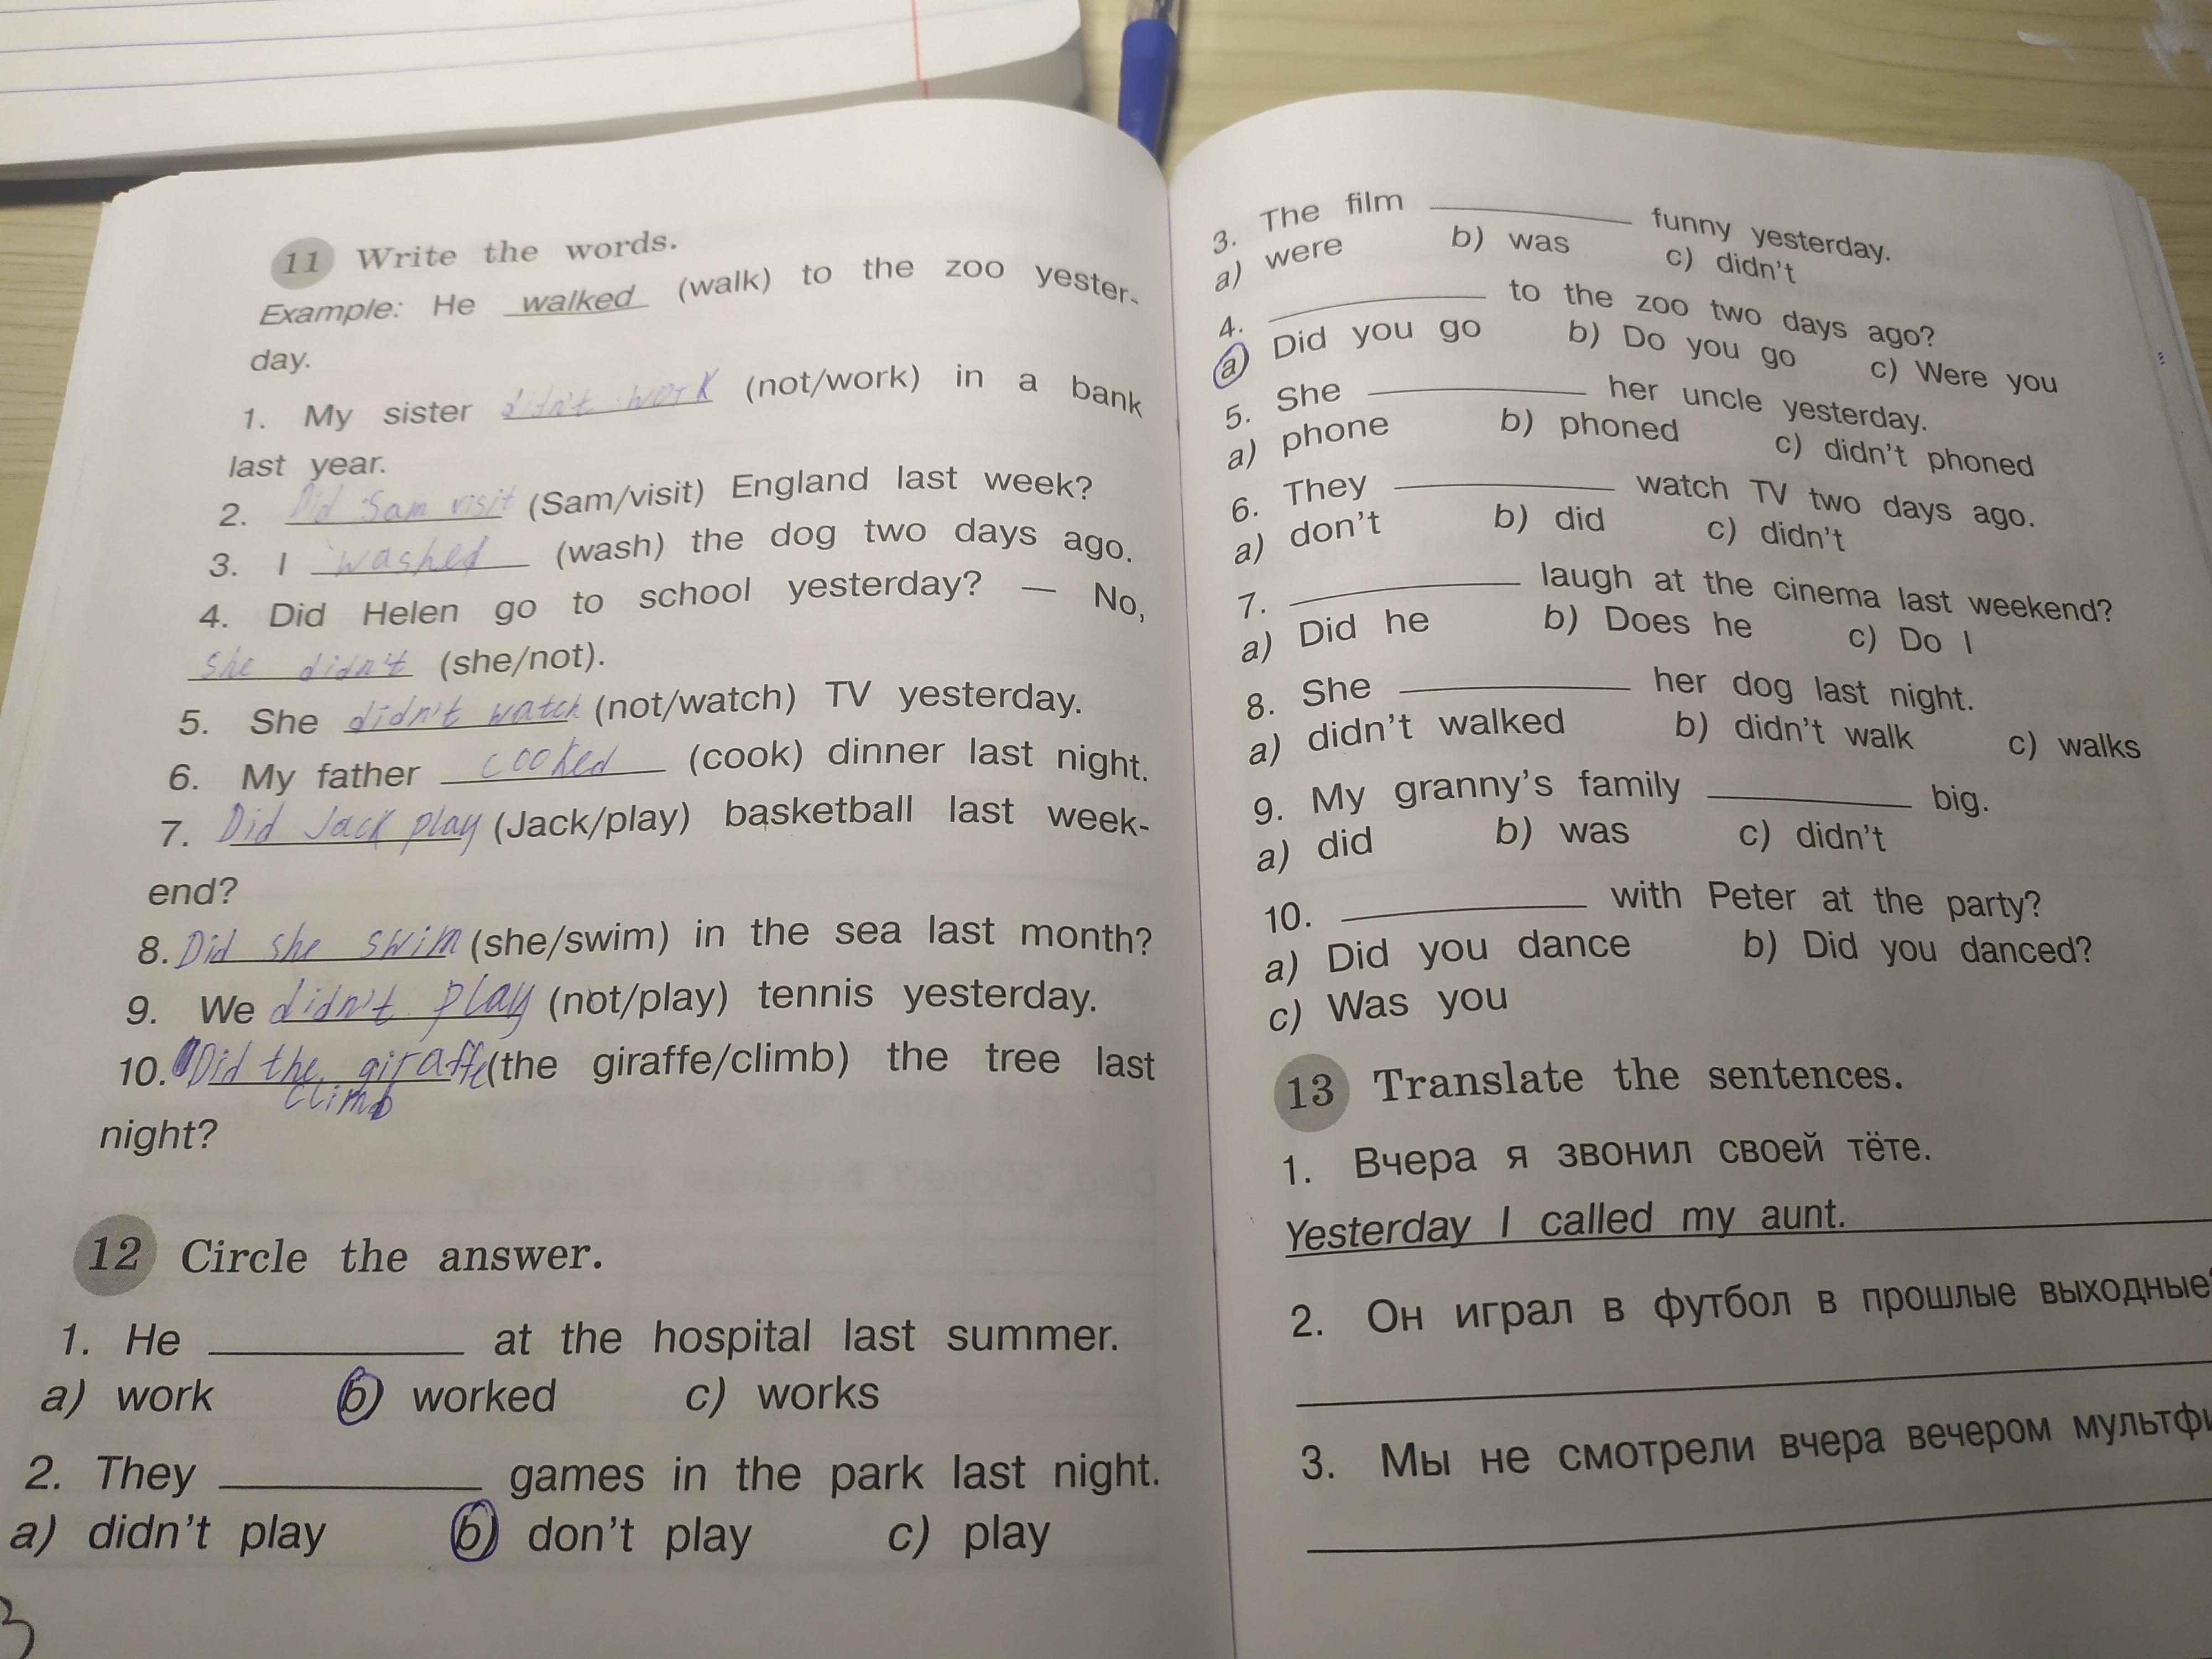 11 Write the words.
Example: He walked (walk) to the zoo yester-
day.
1. My sister didn't work (not/work) in a bank
last year.
2. Did Sam visit (Sam/visit) England last week?
3. I washed (wash) the dog two days ago.
4. Did Helen go to school yesterday? — No,
she didn't (she/not).
5. She didn't watch (not/watch) TV yesterday.
6. My father cooked (cook) dinner last night.
7. Did Jack play (Jack/play) basketball last week-
end?
8. Did she swim (she/swim) in the sea last month?
9. We didn't play (not/play) tennis yesterday.
10. Did the giraffe (the giraffe/climb) the tree last
climb
night?
12 Circle the answer.
1. He ____ at the hospital last summer.
a) work b) worked c) works
2. They ____ games in the park last night.
a) didn't play b) don't play c) play
3. The film ____ funny yesterday.
a) were b) was c) didn't
4. ____ to the zoo two days ago?
a) Did you go b) Do you go c) Were you
5. She ____ her uncle yesterday.
a) phone b) phoned c) didn't phoned
6. They ____ watch TV two days ago.
a) don't b) did c) didn't
7. ____ laugh at the cinema last weekend?
a) Did he b) Does he c) Do I
8. She ____ her dog last night.
a) didn't walked b) didn't walk c) walks
9. My granny's family ____ big.
a) did b) was c) didn't
10. ____ with Peter at the party?
a) Did you dance b) Did you danced?
c) Was you
13 Translate the sentences.
1. Вчера я звонил своей тёте.
Yesterday I called my aunt.
2. Он играл в футбол в прошлые выходные?
3. Мы не смотрели вчера вечером